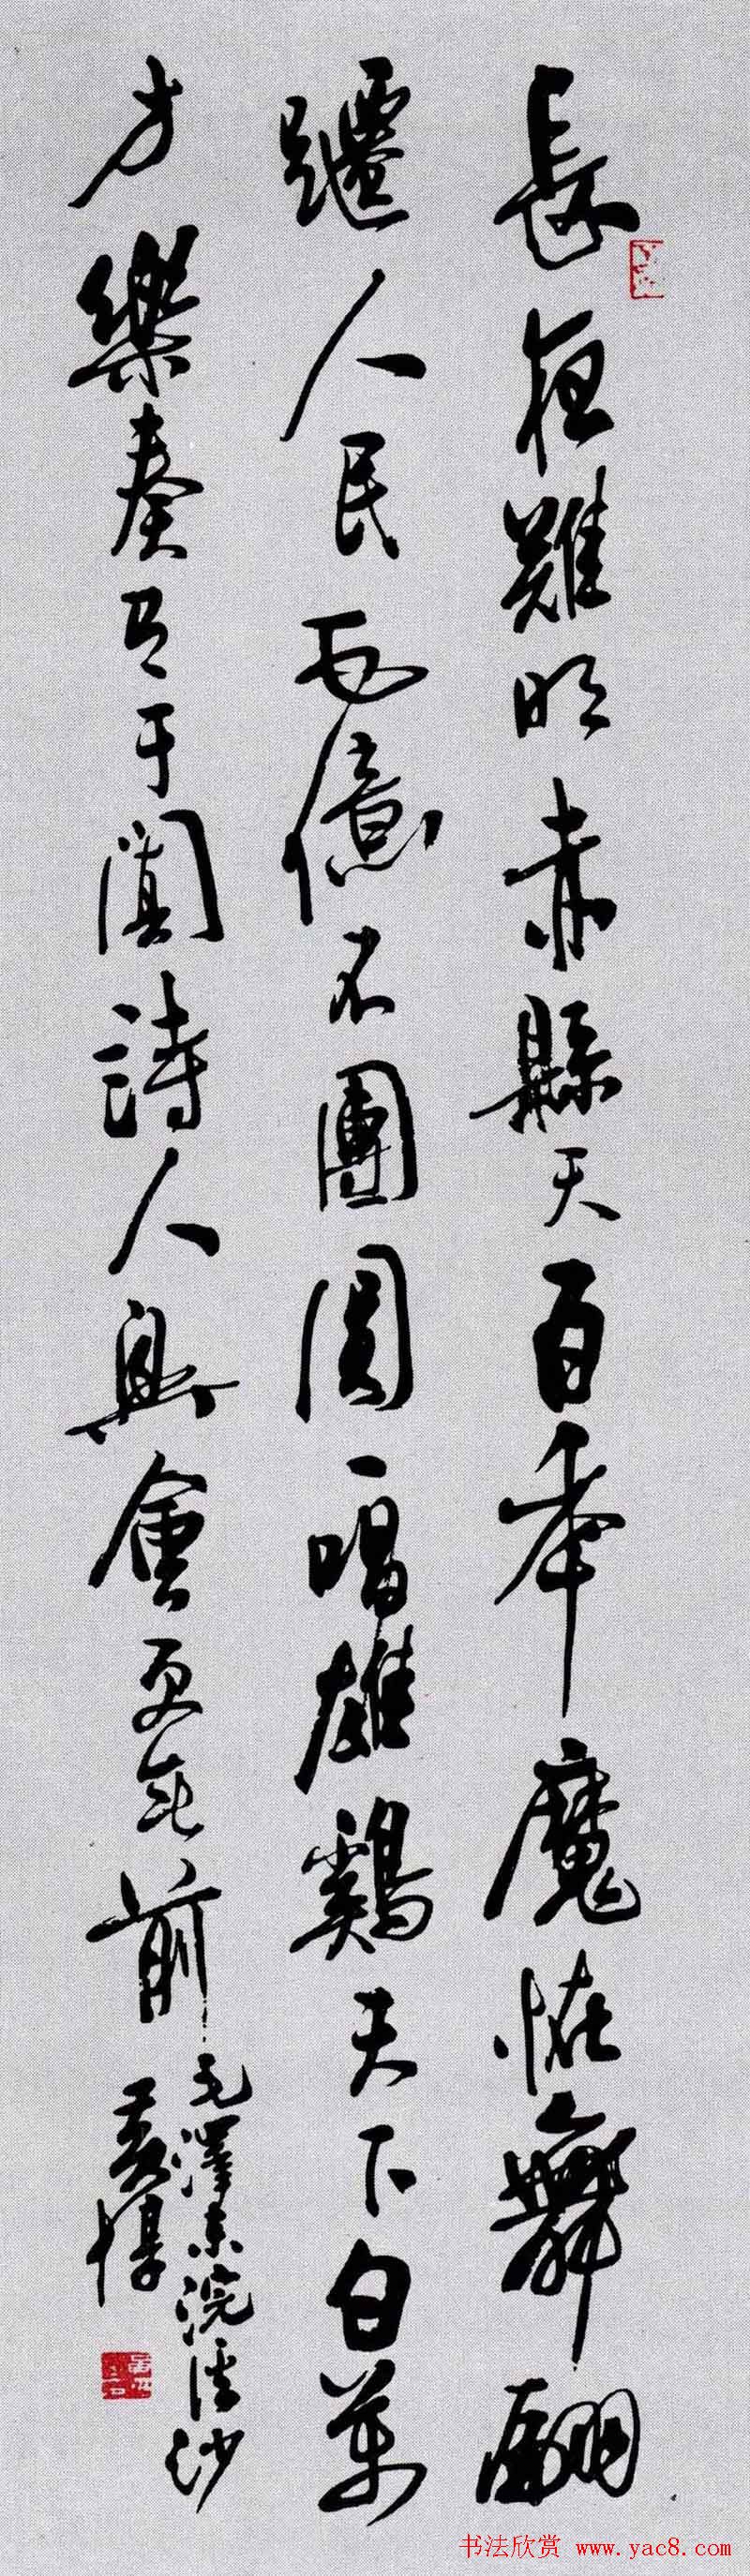 長夜難明赤縣天百年魔恠舞翩
躚人民五億不團圓一唱雄鷄天下白萬
方樂奏有于闐詩人興會更無前
毛澤東浣溪沙
黃惇
书法欣赏 www.yac8.com